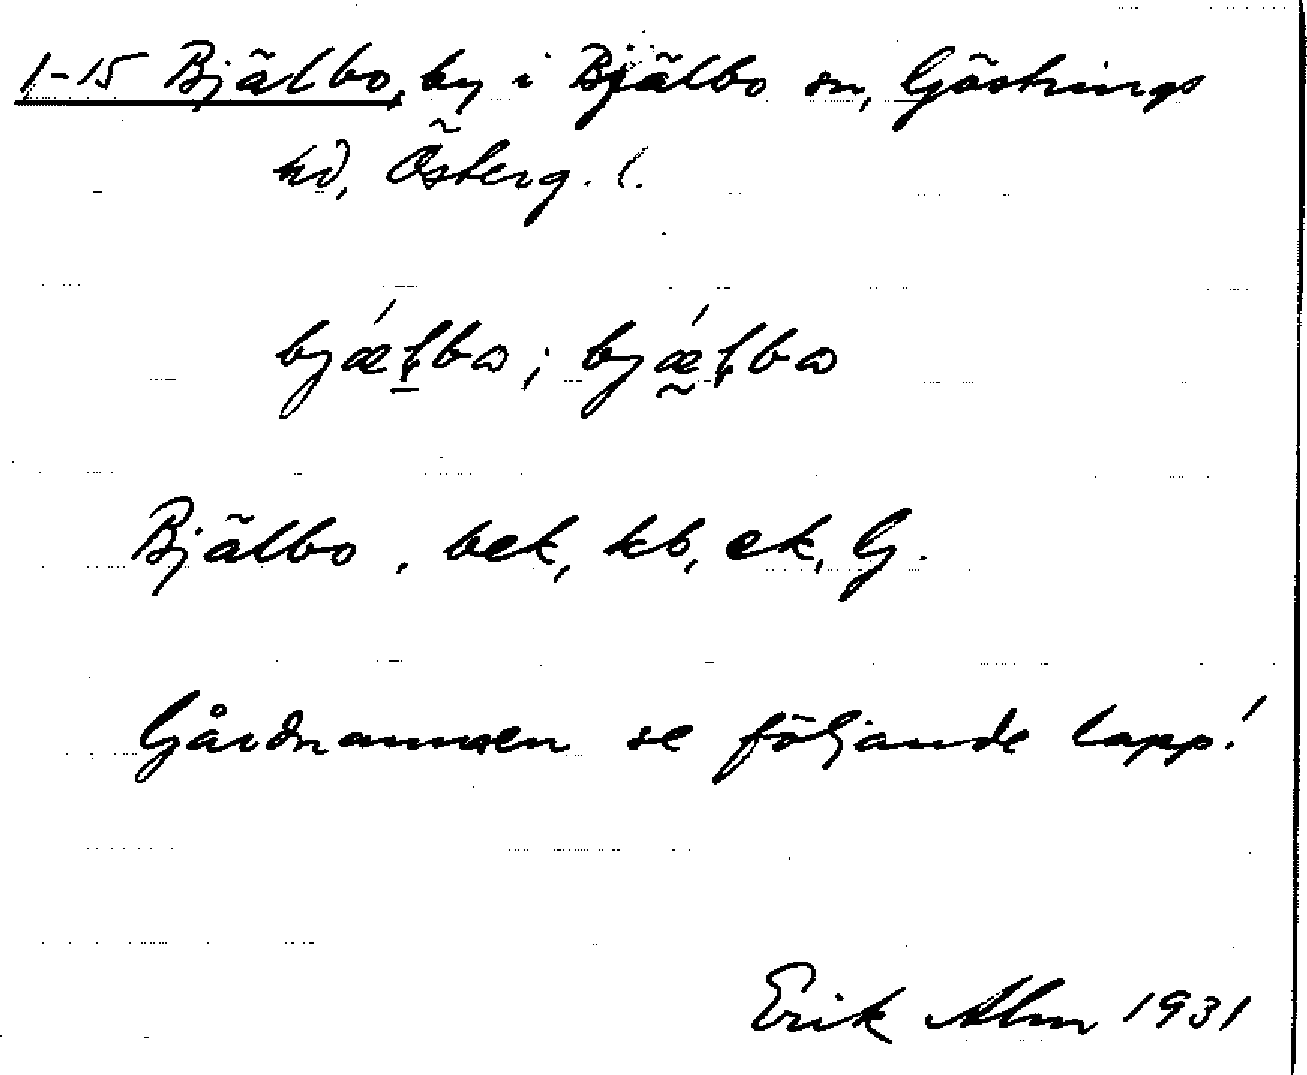 1-15 Bjälbo, by i Bjälbo sn, Göstrings
hd, Österg. l.
bjǽɽbo; bjǽɽbo
Bjälbo, bek, kb, ek, G.
Gårdnamnen se följande lapp!
Erik Alm 1931